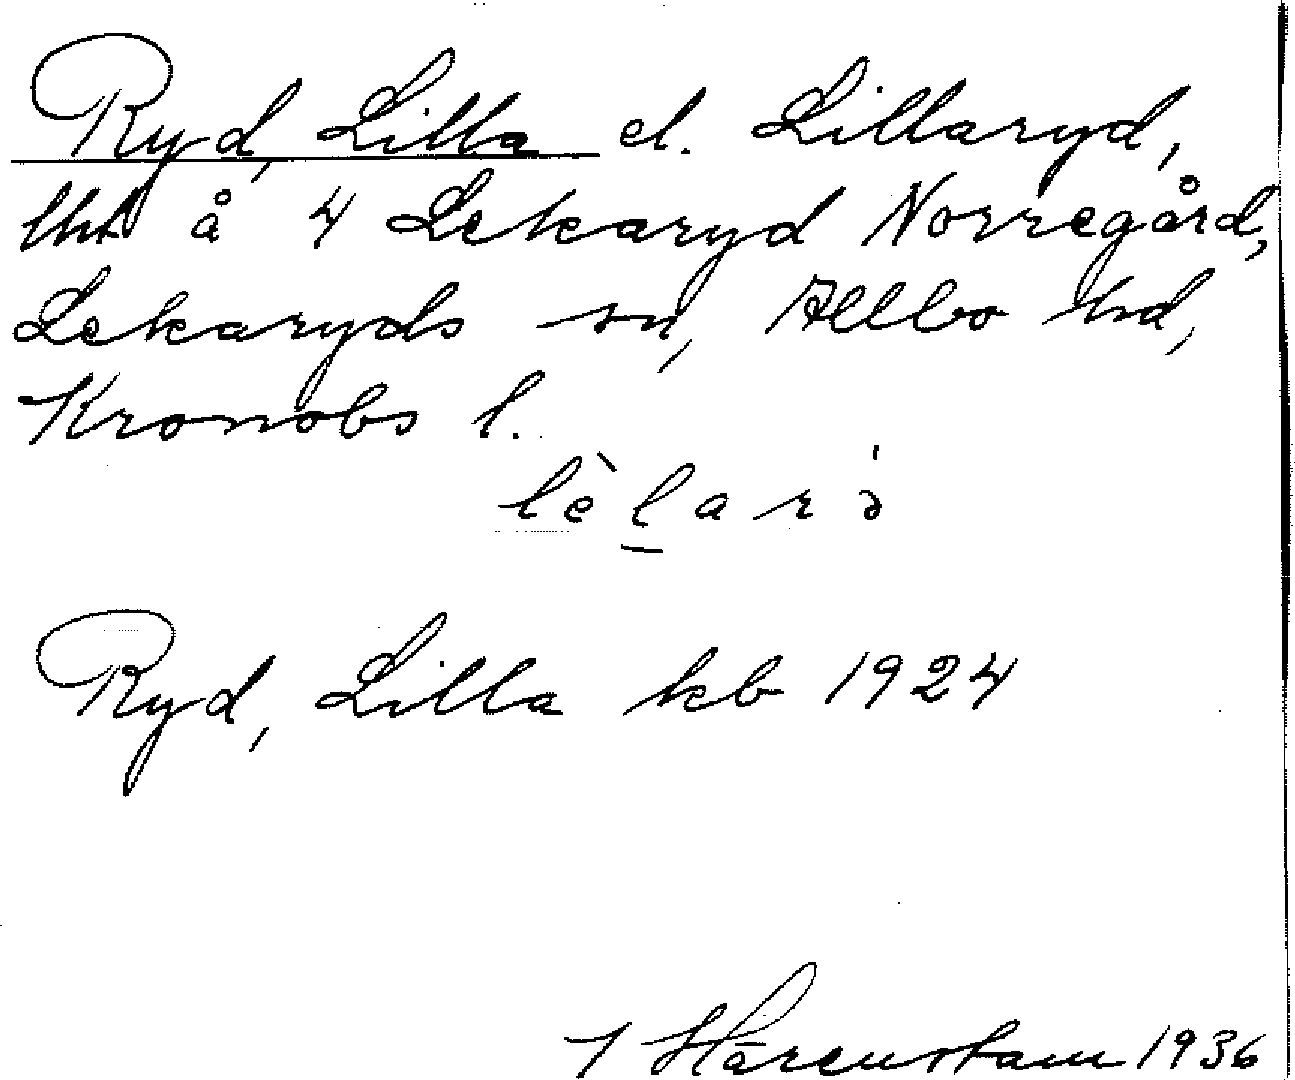 Ryd, Lilla el. Lillaryd,
lht å 4 Lekaryd Norregård,
Lekaryds sn, Allbo hd,
Kronobs l.
lèlarə̀
Ryd, Lilla kb 1924
I Härenstam 1936